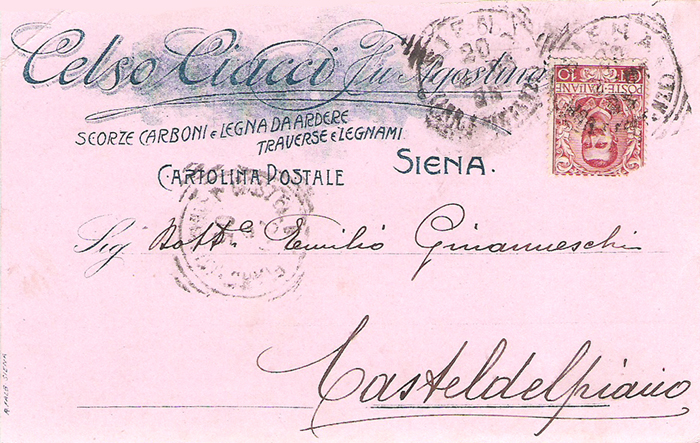 Celso Ciacci Fu Agostino
SCORZE CARBONI e LEGNA DA ARDERE
TRAVERSE e LEGNAMI
SIENA.
CARTOLINA POSTALE
POSTE ITALIANE
10
SIENA
20
SIENA
Sig Dott. Emilio Ginanneschi
Casteldelpiano